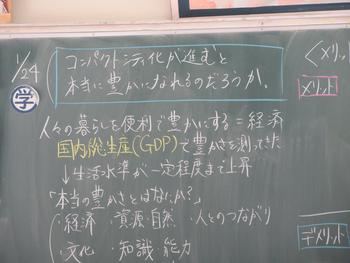 1/24
コンパクトシティ化が進むと
本当に豊かになれるのだろうか。
学
人々の暮らしを便利で豊かにする=経済
国内総生産(GDP)で豊かさを測ってきた
↓生活水準が一定程度まで上昇
「本当の豊かさとはなにか?」
・経済 ・資源・自然 ・人とのつながり
・文化 ・知識・能力
<メリッ
メリット
デメリット